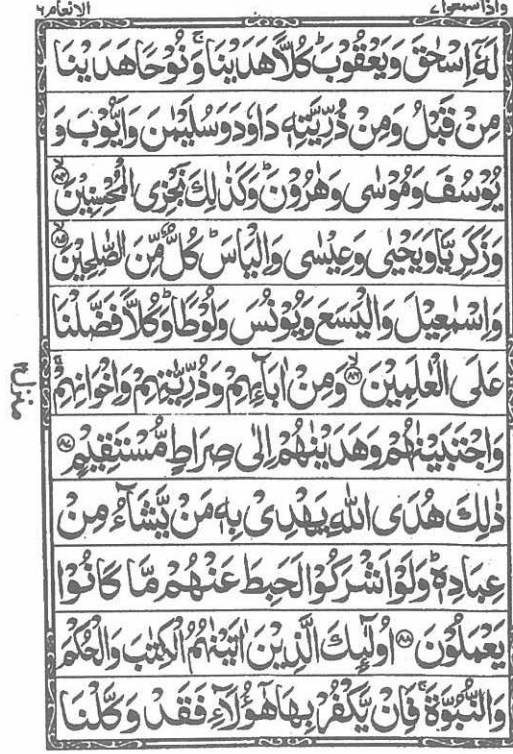 واذا سمعوا ٧ الانعام ٦
لَهٗۤ اِسْحٰقَ وَيَعْقُوْبَ ؕ كُلًّا هَدَيْنَا ۚ وَنُوْحًا هَدَيْنَا
مِنْ قَبْلُ وَمِنْ ذُرِّيَّتِهٖ دَاوٗدَ وَسُلَيْمٰنَ وَاَيُّوْبَ وَ
يُوْسُفَ وَمُوْسٰى وَهٰرُوْنَ ؕ وَكَذٰلِكَ نَجْزِى الْمُحْسِنِيْنَ ۙ﴿۸۴﴾
وَزَكَرِيَّا وَيَحْيٰى وَعِيْسٰى وَاِلْيَاسَ ؕ كُلٌّ مِّنَ الصّٰلِحِيْنَ ۙ﴿۸۵﴾
وَاِسْمٰعِيْلَ وَالْيَسَعَ وَيُوْنُسَ وَلُوْطًا ؕ وَكُلًّا فَضَّلْنَا
عَلَى الْعٰلَمِيْنَ ۙ﴿۸۶﴾ وَمِنْ اٰبَآئِهِمْ وَذُرِّيّٰتِهِمْ وَاِخْوَانِهِمْ ۚ
وَاجْتَبَيْنٰهُمْ وَهَدَيْنٰهُمْ اِلٰى صِرَاطٍ مُّسْتَقِيْمٍ ﴿۸۷﴾
ذٰلِكَ هُدَى اللّٰهِ يَهْدِىْ بِهٖ مَنْ يَّشَآءُ مِنْ
عِبَادِهٖ ؕ وَلَوْ اَشْرَكُوْا لَحَبِطَ عَنْهُمْ مَّا كَانُوْا
يَعْمَلُوْنَ ﴿۸۸﴾ اُولٰٓئِكَ الَّذِيْنَ اٰتَيْنٰهُمُ الْكِتٰبَ وَالْحُكْمَ
وَالنُّبُوَّةَ ۚ فَاِنْ يَّكْفُرْ بِهَا هٰٓؤُلَآءِ فَقَدْ وَكَّلْنَا
منزل ۲